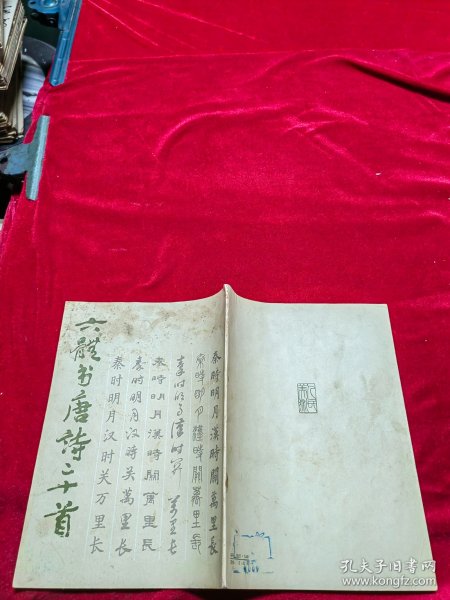 六體书唐诗三十首
秦時明月漢時關萬里長
秦時明月漢時關萬里長
秦时明月汉时关萬里长
秦時明月漢時關萬里長
秦時明月汉時关萬里長
秦时明月汉时关万里长
孔夫子旧书网